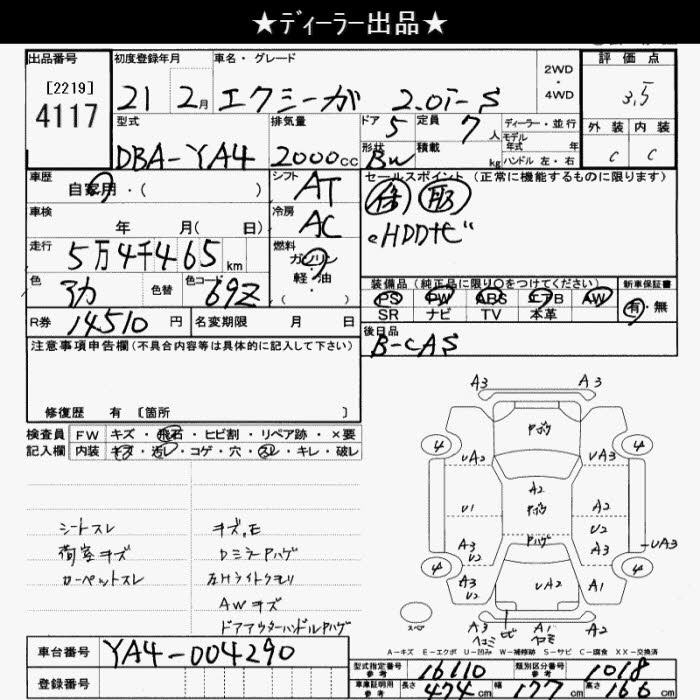 ★ディーラー出品★
出品番号 初度登録年月 車名・グレード 2WD・4WD 評価点
[2219] 4117 21 2月 エクシーガ 2.0i-S 3.5
外装 内装
C C
型式 排気量 ドア 定員 ディーラー・並行
DBA-YA4 2000cc 5 7人 モデル年式 年
形状 積載 ハンドル 左・右
BW kg
車歴 シフト セールスポイント (正常に機能するものに限ります)
自家用・( ) AT
車検 冷房
年 月( 日) AC HDDナビ
走行 燃料
5万4千465km ガソリン
軽・油
・( )
色 色替 色コード 装備品(純正品に限り○をつけてください) 新車保証書
69Z PS PW ABS エアB AW 有・無
SR ナビ TV 本革
R券 14510円 名変期限 月 日 後日品
B-CAS
注意事項申告欄(不具合内容等は具体的に記入して下さい)
修復歴 有 [箇所 ]
検査員 FW キズ・飛石・ヒビ割・リペア跡・×要
記入欄 内装 キズ・汚レ・コゲ・穴・スレ・キレ・破レ
シートスレ キズ,モ
荷室キズ DミラーPハゲ
カーペットスレ 左Hライトクモリ
AWキズ
ドアアウターハンドルPハゲ
A3 A3
4 4
UA2 UA2
A2
U1 A2
U2
Pハゲ
A3 U2 A3 UA3
4 4
A3 U2 UA2 A1
スペア A3 ヘコミ A1 A2
A-キズ E-エクボ U-凹み W-補修跡 S-サビ C-腐食 XX-交換済
車台番号 YA4-004290
登録番号
型式指定番号 参考 16110 類別区分番号 参考 1018
車庫証明用 参考 長さ 474cm 幅 177cm 高さ 166cm